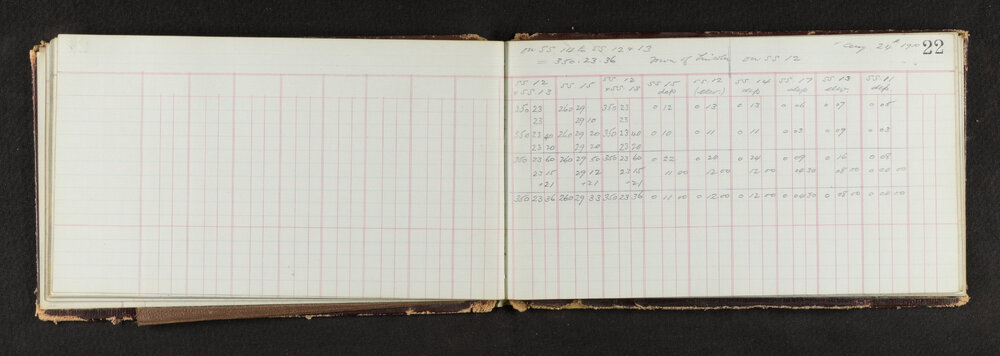 on SS 14 to SS 12 + 13 Aug 24th 22
= 350.23.36 Town of on SS 12
SS 12 + SS 13 SS 15 SS 12 + SS 13 SS 15 dep SS 12 (elev.) SS 14 dep SS 17 dep SS 13 elev. SS 11 dep.
350 23 260 29 350 23 0 12 0 13 0 13 0 06 0 07 0 05
23 29 10 23
350 23 40 260 29 20 350 23 40 0 10 0 11 0 11 0 03 0 09 0 03
23 20 29 20 23 20
350 23 60 260 29 50 350 23 60 0 22 0 24 0 09 0 16 0 08
23 15 29 12 23 15 11 00 12 00 12 00 04 30 08 00 0 04 00
+21 +21 +21
350 23 36 260 29 33 350 23 36 0 11 00 0 12 00 0 12 00 0 04 30 0 08 00 0 04 00